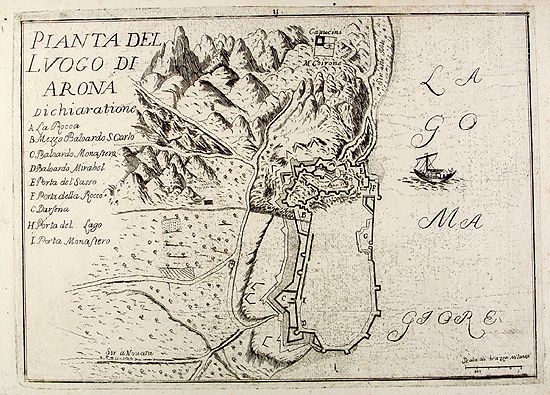 PIANTA DEL
LVOGO DI
ARONA
Dichiaratione
A La Rocca
B. Mezzo Baloardo S. Carlo
C. Baloardo Monastero
D Baloardo Mirabel
E. Porta del Sasso
F. Porta della Rocca
G. Darsena
H. Porta del Lago
I. Porta Monastero
Capucini
LAGO MAGIORE